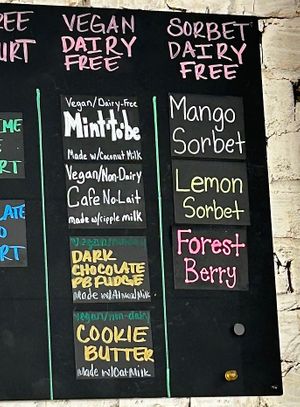 REE
URT
IME
E
RT
LATE
O
RT
VEGAN
DAIRY
FREE
Vegan/Dairy-Free
Mint to be
Made w/Coconut Milk
Vegan/Non-Dairy
Cafe No-Lait
made w/ripple milk
Vegan/non-dairy
DARK
CHOCOLATE
PB FUDGE
Made w/Almond Milk
Vegan/non-dairy
COOKIE
BUTTER
Made w/Oat Milk
SORBET
DAIRY
FREE
Mango
Sorbet
Lemon
Sorbet
Forest
Berry